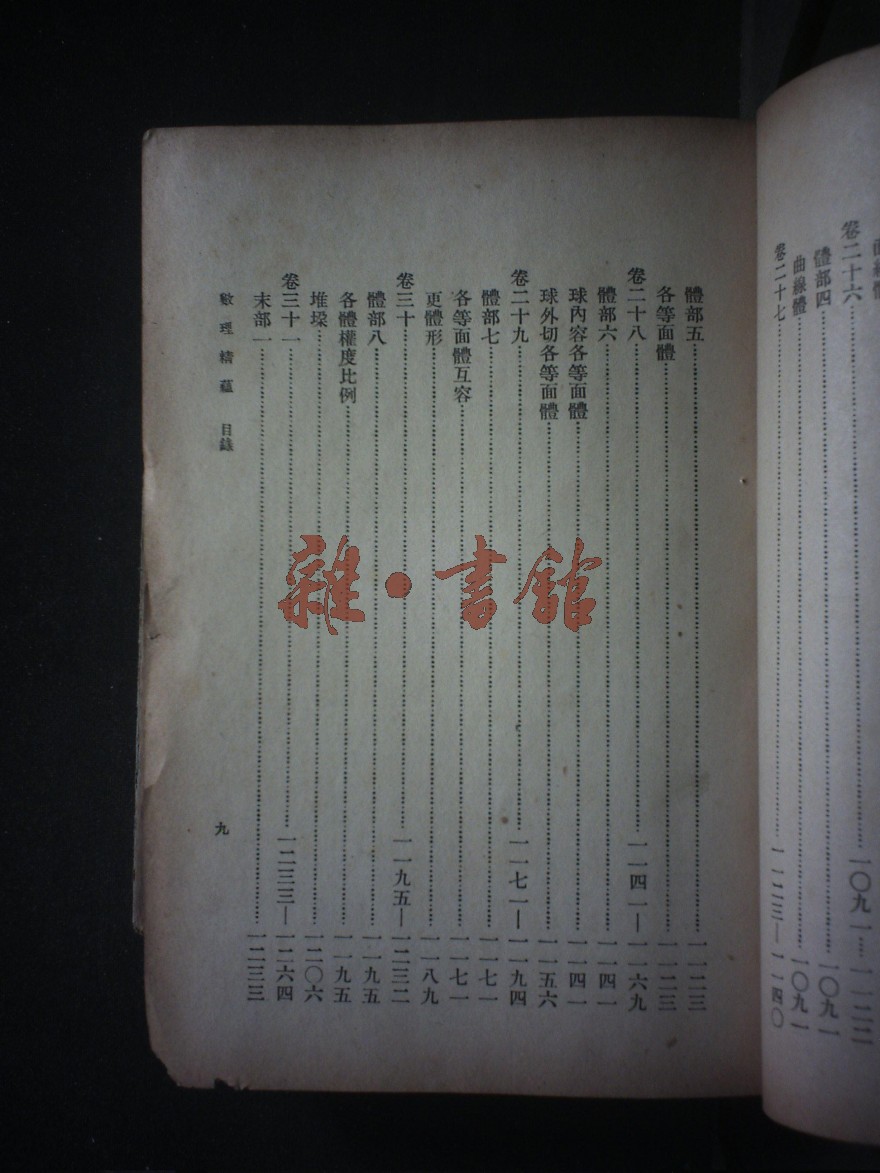 曲線體
卷二十六……一〇九一——一一二二
體部四……一〇九一
曲線體……一〇九一
卷二十七……一一二三——一一四〇
體部五……一一二三
各等面體……一一二三
卷二十八……一一四一——一一六九
體部六……一一四一
球內容各等面體……一一四一
球外切各等面體……一一五六
卷二十九……一一七一——一一九四
體部七……一一七一
各等面體互容……一一七一
更體形……一一八九
卷三十……一一九五——一二三二
體部八……一一九五
各體權度比例……一一九五
堆垜……一二〇六
卷三十一……一二三三——一二六四
末部一……一二三三
數理精蘊 目錄
九
雜·書館